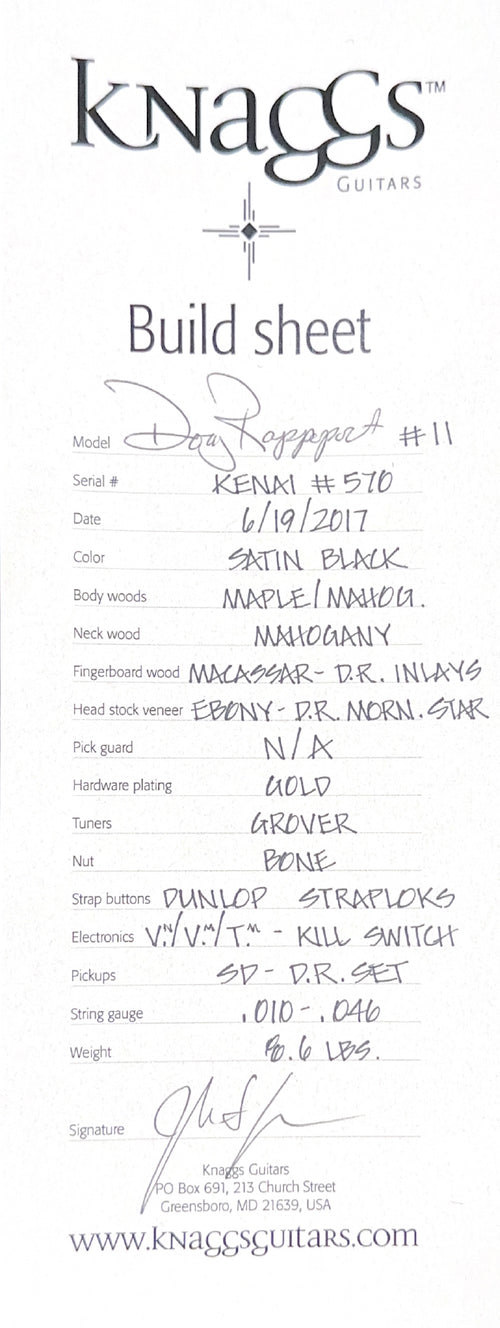 Knaggs™
Guitars
Build sheet
Model Doug Rappoport #11
Serial # KENAI #570
Date 6/19/2017
Color SATIN BLACK
Body woods MAPLE/MAHOG.
Neck wood MAHOGANY
Fingerboard wood MACASSAR- D.R. INLAYS
Head stock veneer EBONY- D.R. MORN. STAR
Pick guard N/A
Hardware plating GOLD
Tuners GROVER
Nut BONE
Strap buttons DUNLOP STRAPLOKS
Electronics V.N/V.M/T.M - KILL SWITCH
Pickups SD- D.R. SET
String gauge .010-.046
Weight 8.6 LBS.
Signature
Knaggs Guitars
PO Box 691, 213 Church Street
Greensboro, MD 21639, USA
www.knaggsguitars.com